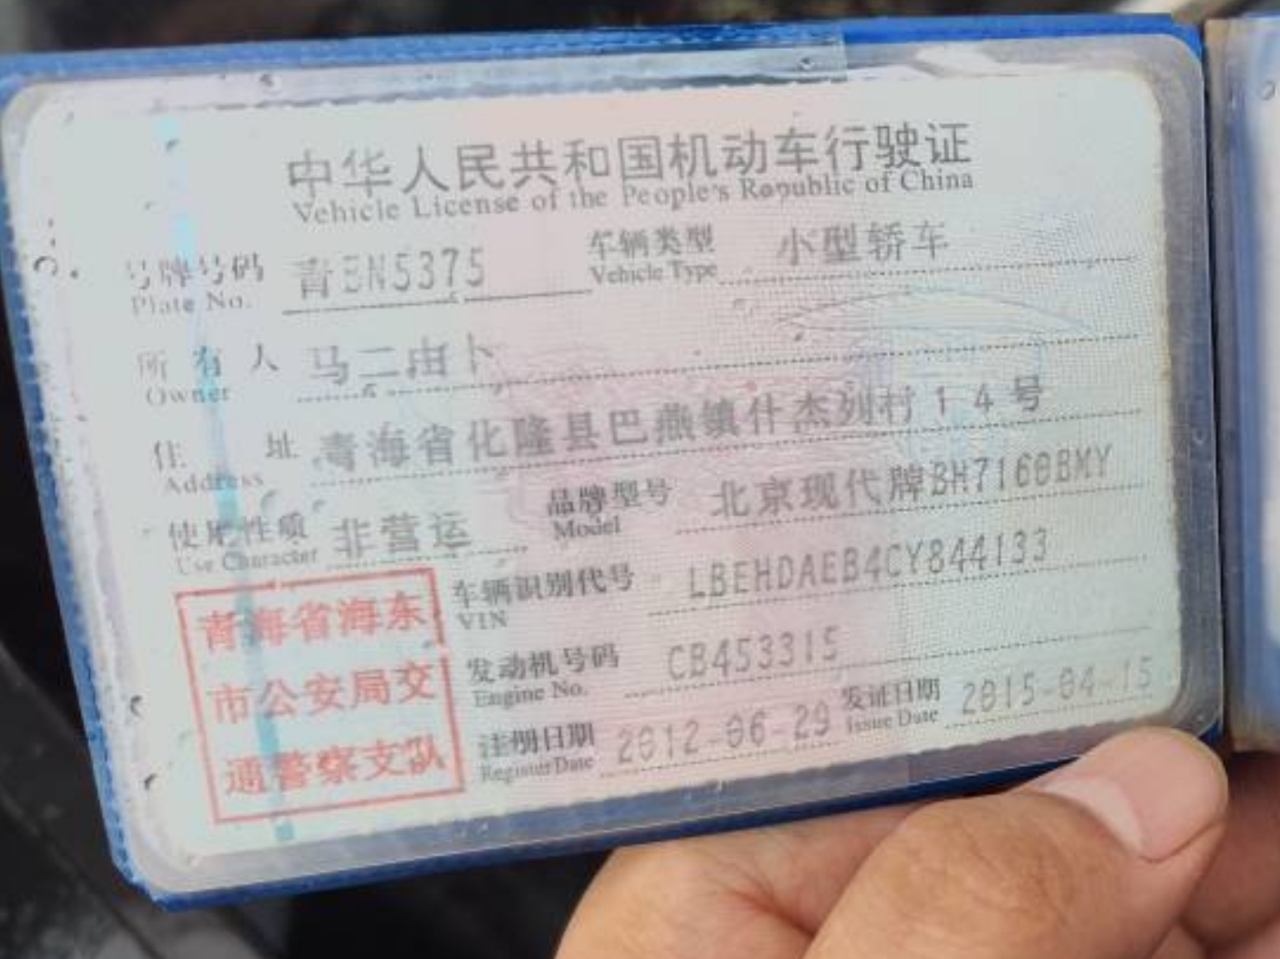 中华人民共和国机动车行驶证
Vehicle License of the People's Republic of China
号牌号码 青BN5375 车辆类型 小型轿车
Plate No. Vehicle Type
所有人 马二由卜
Owner
住址 青海省化隆县巴燕镇什杰列村14号
Address
使用性质 非营运 品牌型号 北京现代牌BH7160BMY
Use Character Model
车辆识别代号 LBEHDAEB4CY844133
VIN
发动机号码 CB453315
Engine No.
注册日期 2012-06-29 发证日期 2015-04-15
Register Date Issue Date
青海省海东
市公安局交
通警察支队